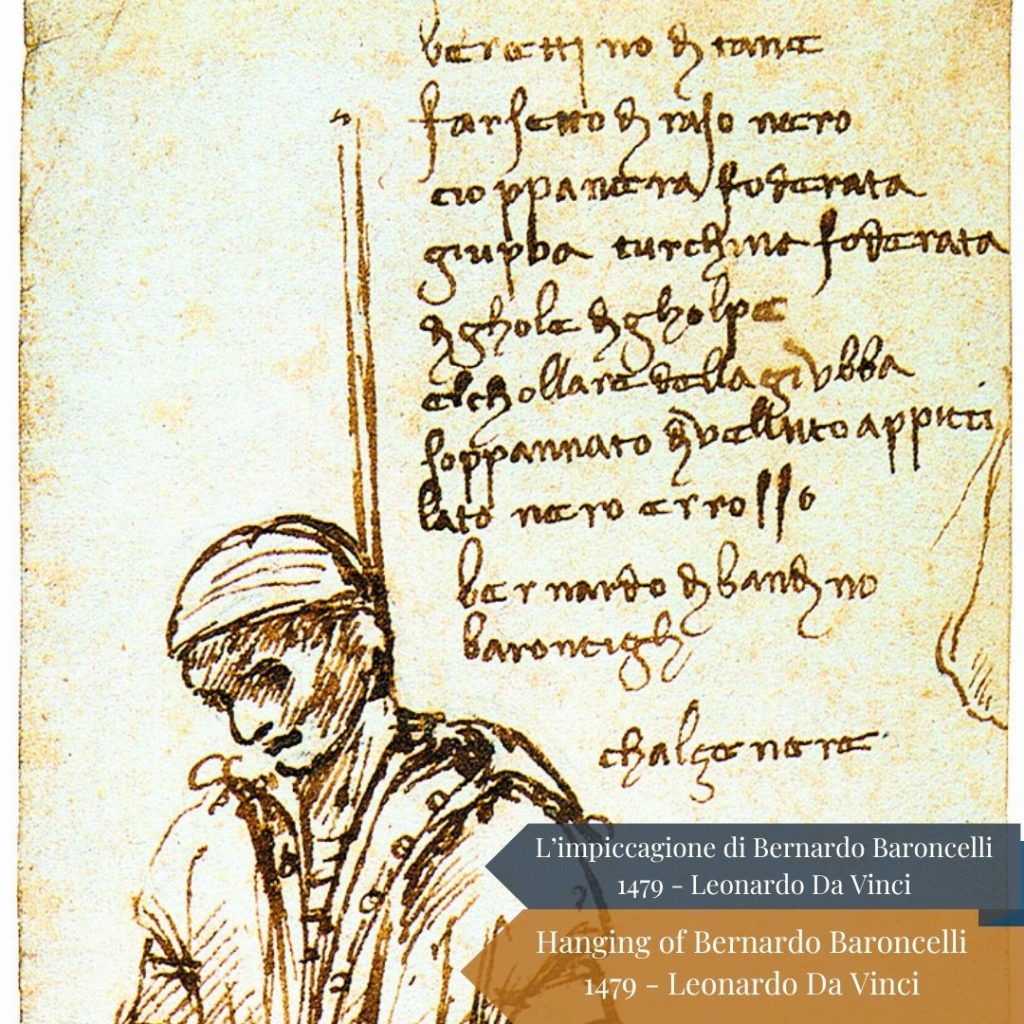 berettino di tane
farsetto di raso nero
cioppa nera foderata
giupba turchina foderata
di ghole di gholpe
elchollare della giubba
soppannato di velluto appicci
lato nero e rrosso
bernardo di bandino
baroncigli
chalze nere
L’impiccagione di Bernardo Baroncelli
1479 - Leonardo Da Vinci
Hanging of Bernardo Baroncelli
1479 - Leonardo Da Vinci